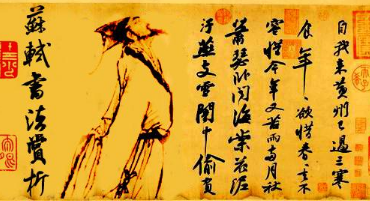 自我來黃州已過三寒
食年々欲惜春々去不
容惜今年又苦雨兩月秋
蕭瑟卧聞海棠花泥
汙燕支雪闇中偷負
蘇軾書法賞析